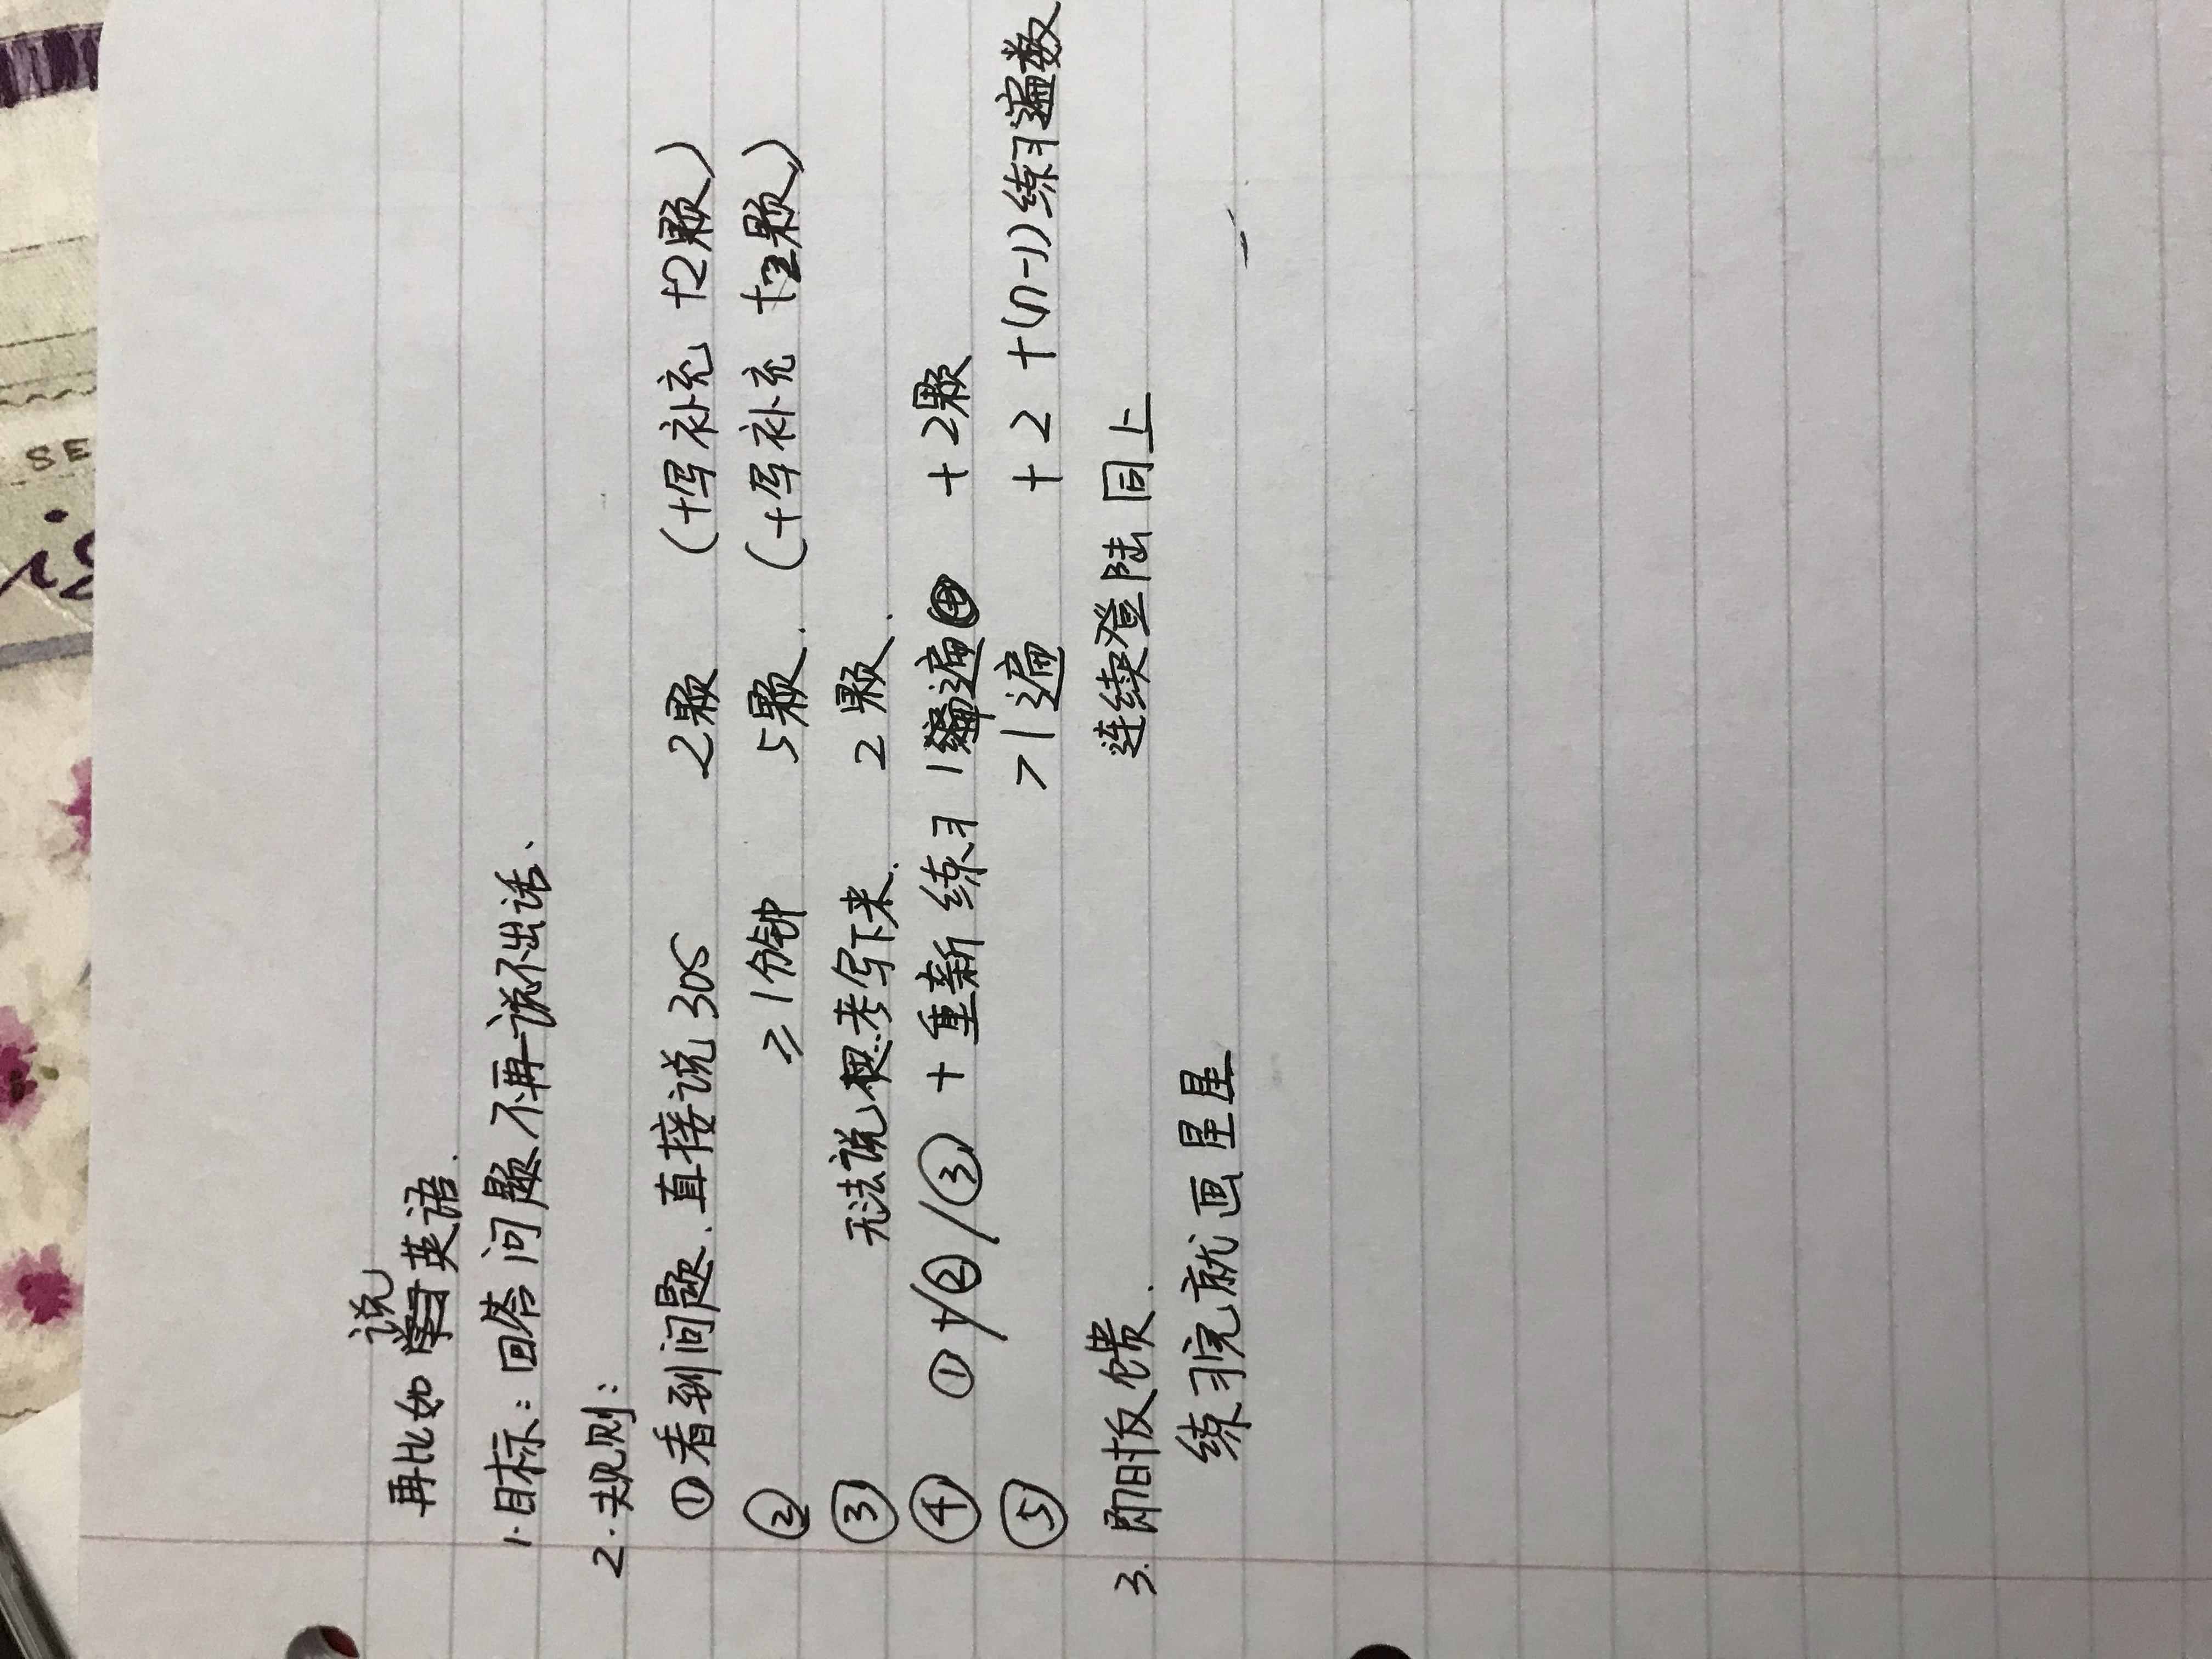 SE
再比如说英语.
1.目标：回答问题不再说不出话.
2.规则：
①看到问题.直接说30S 2颗 (+写补充 +2颗)
② ≥1分钟 5颗. (+写补充 +2颗)
③ 无法说思考写下来. 2颗.
④ ①/②/③ +重新练习1遍 +2颗
⑤ >1遍 +2 +(n-1)练习遍数
3.即时反馈. 连续登陆同上
练习完就画星星